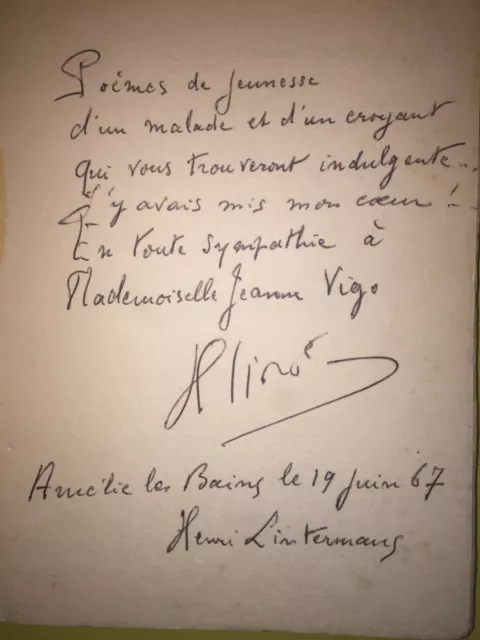 Poèmes de Jeunesse
d'un malade et d'un croyant
qui vous trouveront indulgente...
J'y avais mis mon cœur !
En toute sympathie à
Mademoiselle Jeanne Vigo
Amélie les Bains le 19 juin 67
Henri Lintermans